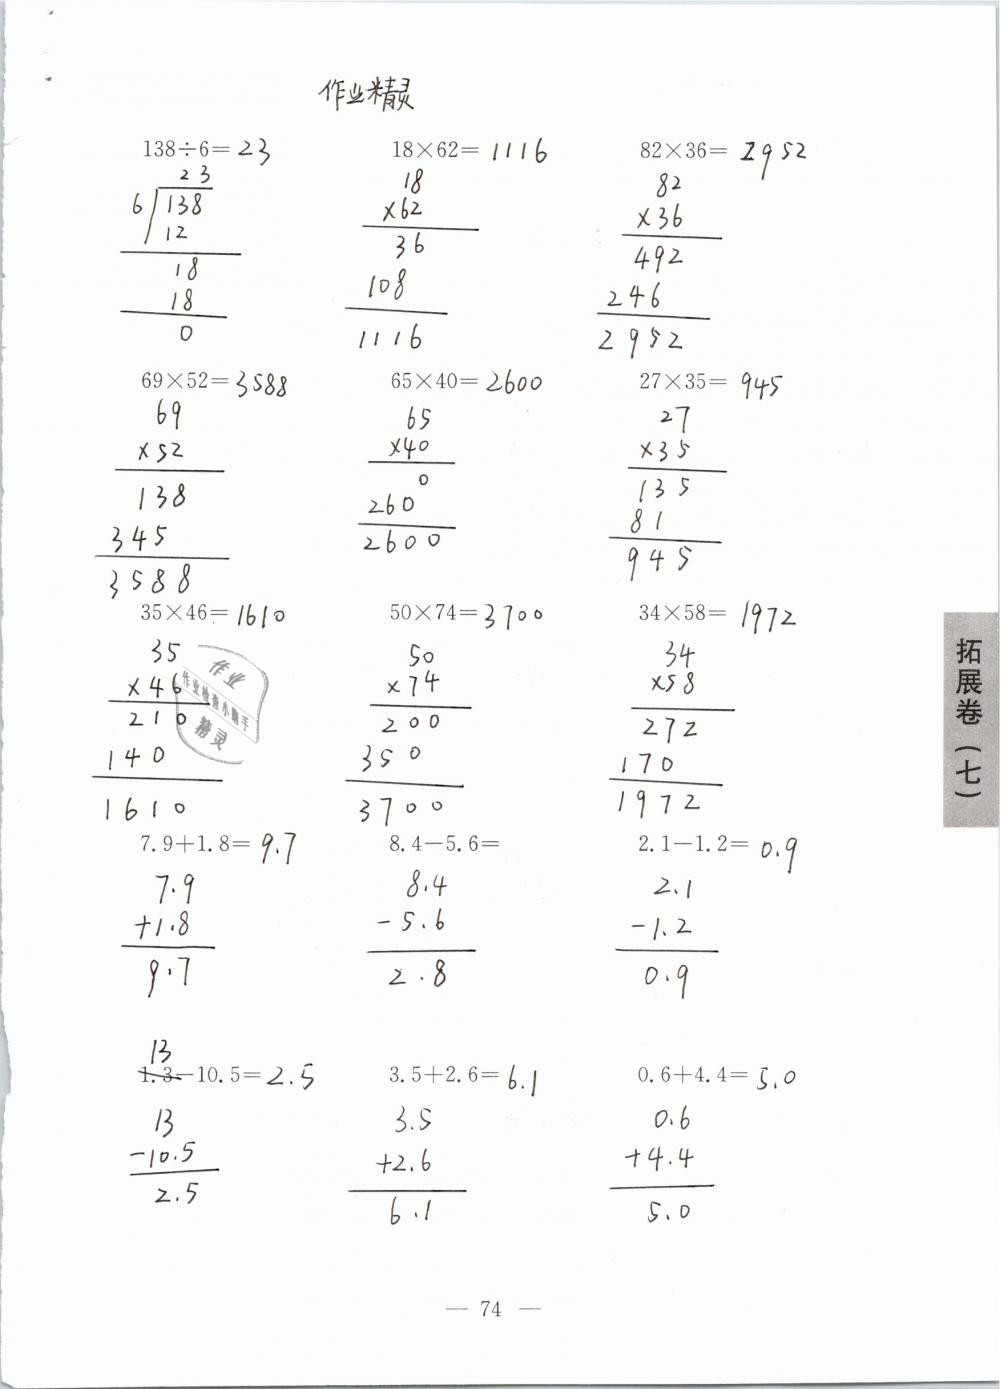 作业精灵
138÷6=23
23
6 138
12
18
18
0
18×62=1116
18
×62
36
108
1116
82×36=2952
82
×36
492
246
2952
69×52=3588
69
×52
138
345
3588
65×40=2600
65
×40
0
260
2600
27×35=945
27
×35
135
81
945
35×46=1610
35
×46
210
140
1610
作业
作业检查小助手
精灵
50×74=3700
50
×74
200
350
3700
34×58=1972
34
×58
272
170
1972
7.9+1.8=9.7
7.9
+1.8
9.7
8.4-5.6=
8.4
-5.6
2.8
2.1-1.2=0.9
2.1
-1.2
0.9
13
1.3-10.5=2.5
13
-10.5
2.5
3.5+2.6=6.1
3.5
+2.6
6.1
0.6+4.4=5.0
0.6
+4.4
5.0
拓展卷(七)
— 74 —